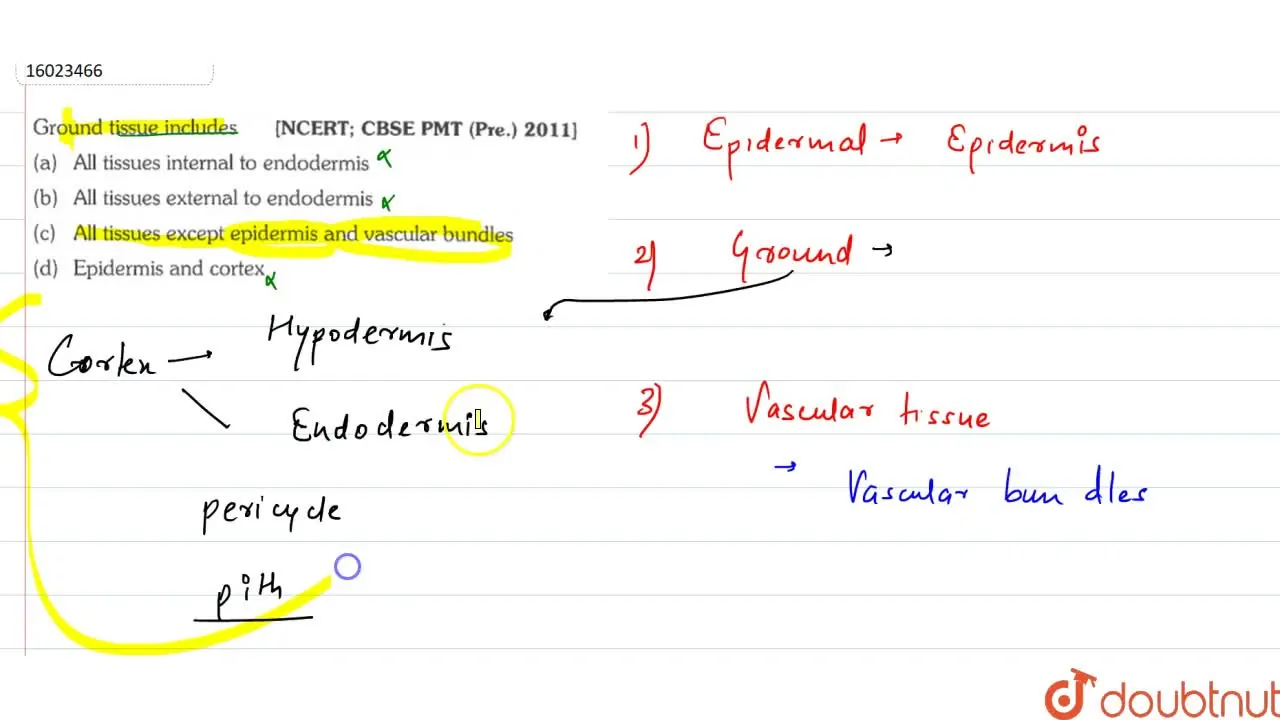 16023466
Ground tissue includes [NCERT; CBSE PMT (Pre.) 2011]
(a) All tissues internal to endodermis
(b) All tissues external to endodermis
(c) All tissues except epidermis and vascular bundles
(d) Epidermis and cortex
Cortex → Hypodermis
Endodermis
pericycle
pith
1) Epidermal → Epidermis
2) Ground →
3) Vascular tissue
→ Vascular bundles
doubtnut